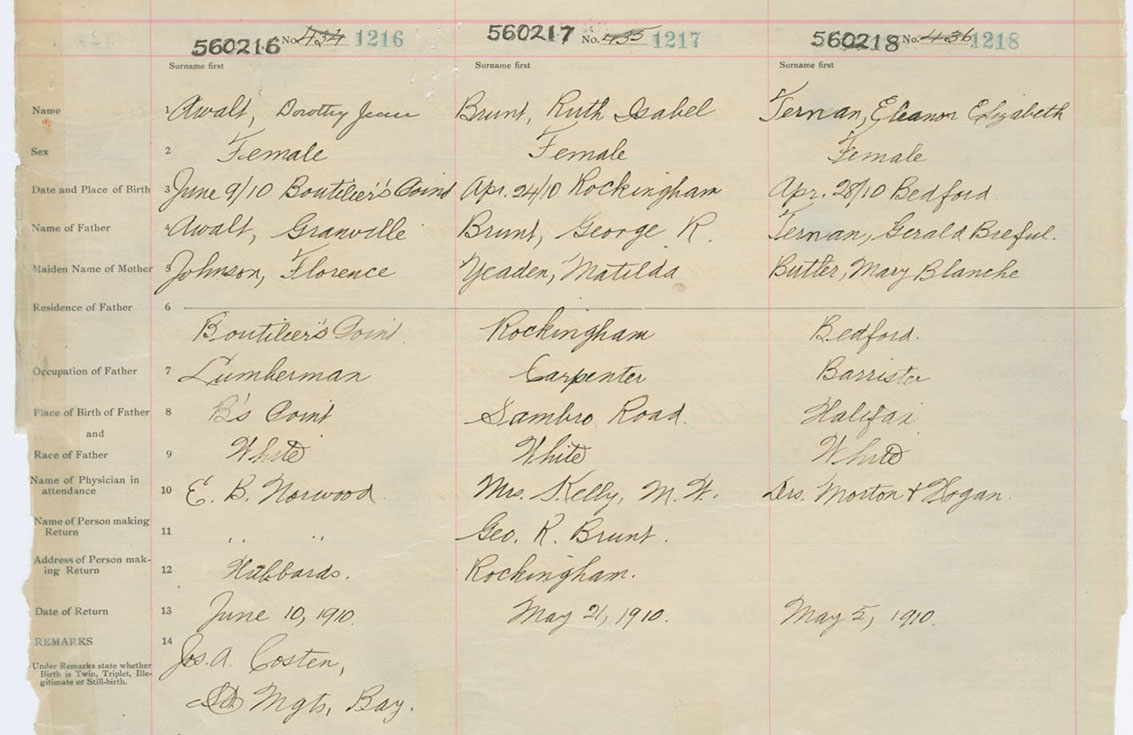 560216 No. 434 1216 560217 No. 435 1217 560218 No. 436 1218
Surname first Surname first Surname first
Name 1 Awalt, Dorothy Jean Brunt, Ruth Isabel Ternan, Eleanor Elizabeth
Sex 2 Female Female Female
Date and Place of Birth 3 June 9/10 Boutilier's Point Apr. 24/10 Rockingham Apr. 28/10 Bedford
Name of Father 4 Awalt, Granville Brunt, George R. Ternan, Gerald
Maiden Name of Mother 5 Johnson, Florence Yeaden, Matilda Butler, Mary Blanche
Residence of Father 6
Boutilier's Point. Rockingham Bedford.
Occupation of Father 7 Lumberman Carpenter Barrister
Place of Birth of Father 8 B's Point Sambro Road. Halifax
and
Race of Father 9 White White White
Name of Physician in
attendance 10 E. B. Norwood Mrs. Kelly, M. W. Drs. Morton & Hogan.
Name of Person making
Return 11 " " Geo. R. Brunt.
Address of Person mak-
ing Return 12 Hubbards. Rockingham.
Date of Return 13 June 10, 1910. May 21, 1910. May 5, 1910.
REMARKS 14
Jos. A. Costen,
Under Remarks state whether
Birth is Twin, Triplet, Ille-
gitimate or Still-birth.
Mgts, Bay.